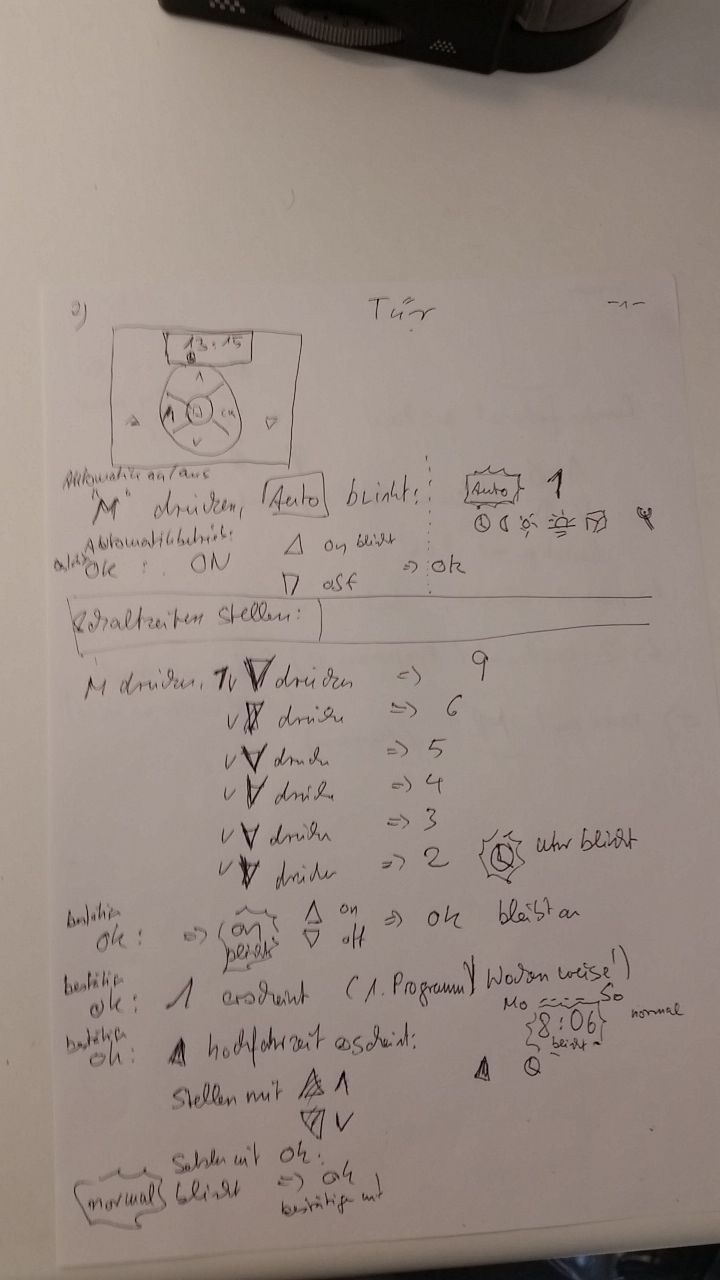 2) Tür -1-
13:15
M OK
Automatik an/aus
"M" drücken, Auto blinkt: Auto 1
Automatikbetrieb:
OK : ON △ on blinkt
▽ off => ok
Schaltzeiten stellen:
M drücken, 7x ▽ drücken => 9
v ▽ drücke => 6
v ▽ drücke => 5
v ▽ drücke => 4
v ▽ drücke => 3
v ▽ drücke => 2 Uhr blinkt
bestätige
ok: => on blinkt △ on => ok bleibt an
▽ off
bestätige
ok: 1 erscheint (1. Programm) Wochenweise!)
Mo ---- So
bestätige
ok: ▲ hochfahrzeit erscheint: 8:06 normal
blinkt
stellen mit △ ∧
▽ ∨
mit ok:
normal blinkt => ok
bestätige mit